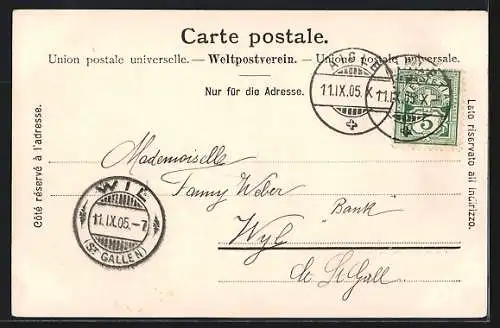 Carte postale.
Union postale universelle. — Weltpostverein. — Unione postale universale.
Nur für die Adresse.
Côté réservé à l'adresse.
Lato riservato all' indirizzo.
11.IX.05.X
11.IX.05.X
HELVETIA
5
Mademoiselle
Fanny Weber
Bank
Wyl
Ct. St Gall
WIL
11.IX.05.-7
(ST GALLEN)